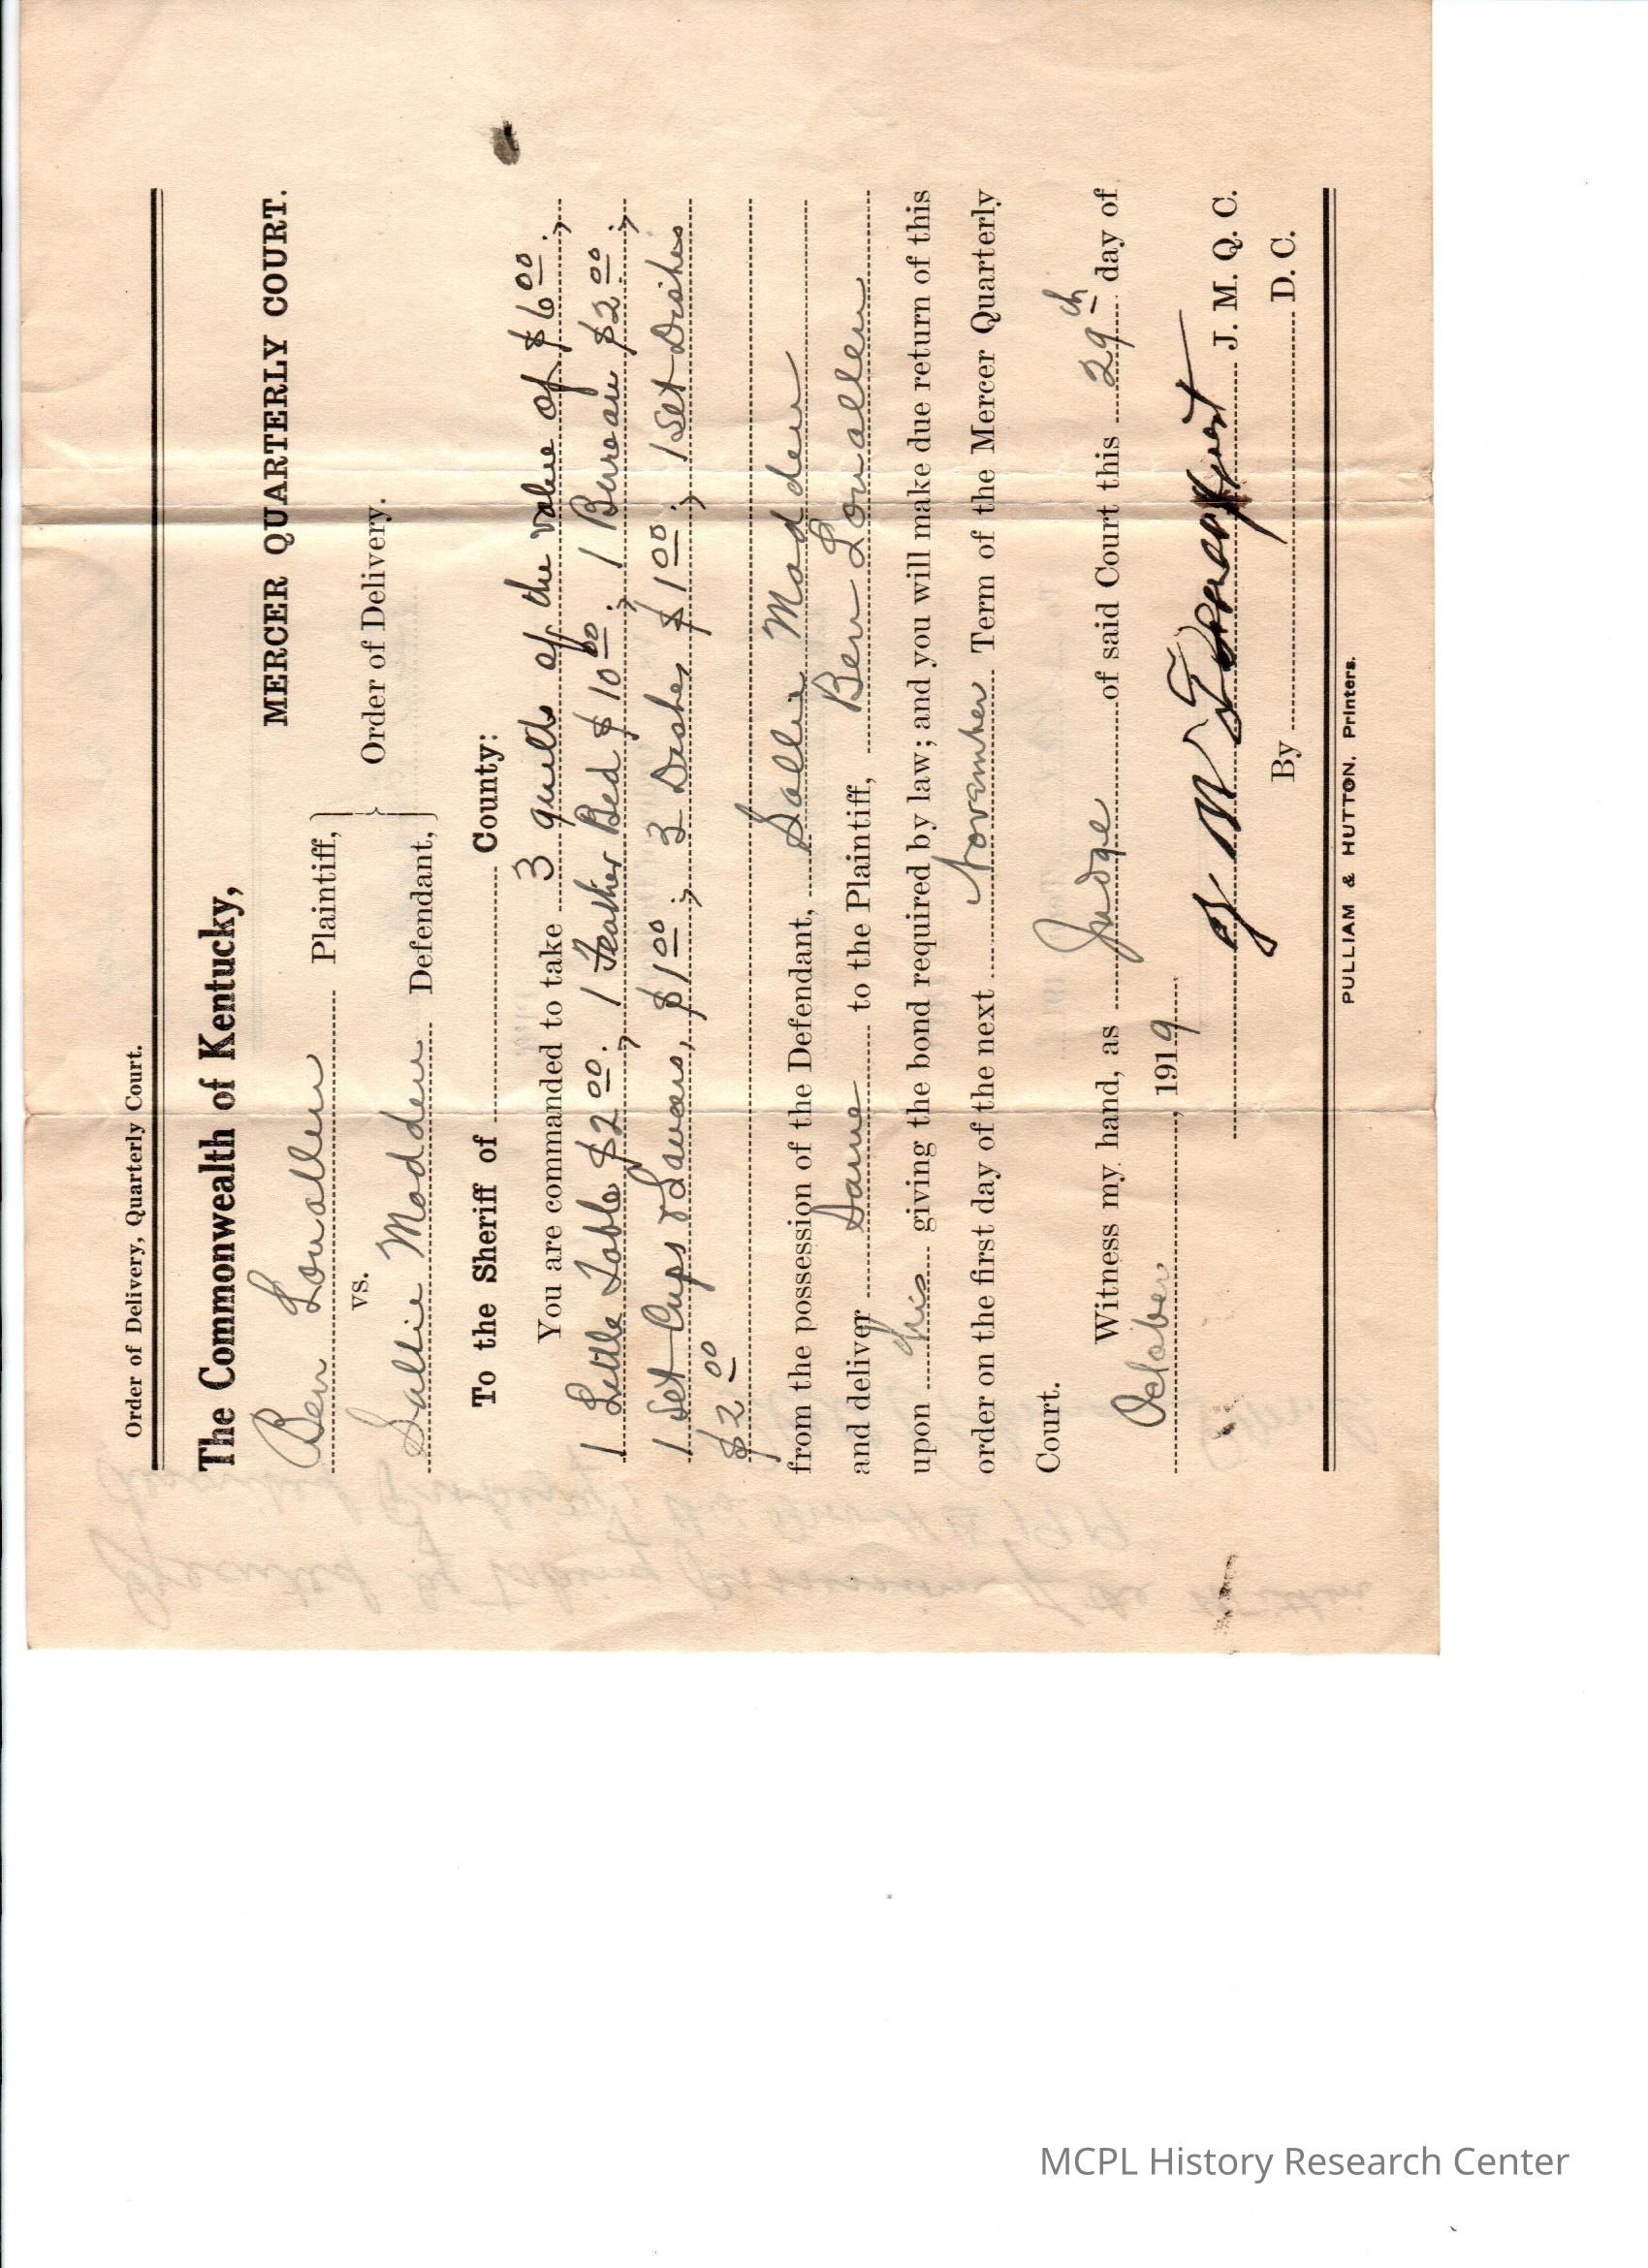 Order of Delivery, Quarterly Court.
The Commonwealth of Kentucky,
MERCER QUARTERLY COURT.
Ben Louallen Plaintiff,
vs. Order of Delivery.
Sallie Madden Defendant,
To the Sheriff of County:
You are commanded to take 3 quilts of the value of $6 00;
1 Little Table $2 00; 1 Feather Bed $10 00; 1 Bureau $2 00;
1 Set Cups & Saucers, $1 00; 3 Dishes $1 00; 1 Set Dishes
$2 00
from the possession of the Defendant, Sallie Madden
and deliver Same to the Plaintiff, Ben Louallen
upon his giving the bond required by law; and you will make due return of this
order on the first day of the next November Term of the Mercer Quarterly
Court.
Witness my hand, as Judge of said Court this 29th day of
October, 1919
J. M. Q. C.
By D. C.
PULLIAM & HUTTON, Printers.
Executed by taking Possession of the within
described Property, this Nov 1919
MCPL History Research Center